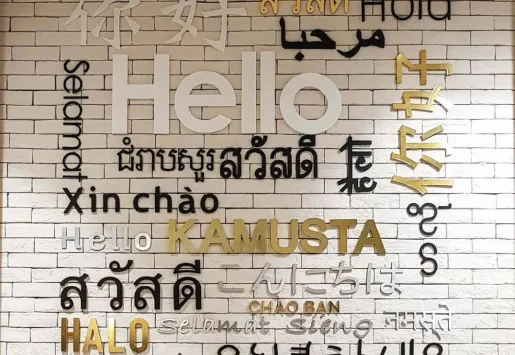 你好
สวัสดี
Hola
مرحبا
Hello
Selamat
你好
ជំរាបសួរ
สวัสดี
Xin chào
Hello
KAMUSTA
สวัสดี
こんにちは
CHÀO BẠN
नमस्ते
HALO
Selamat Sieng